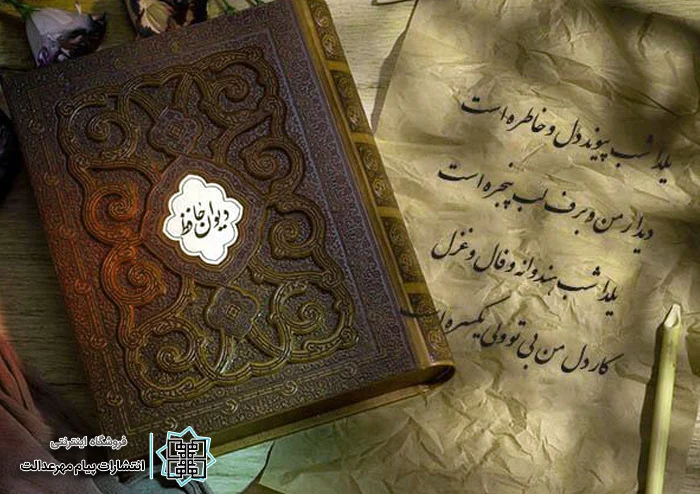 دیوان حافظ
یلدا شب پیوند دل و خاطره است
دیدار من و برف لب پنجره است
یلدا شب هندوانه و فال و غزل
کار دل من بی تو ولی یکسره
فروشگاه اینترنتی
انتشارات پیام مهرعدالت